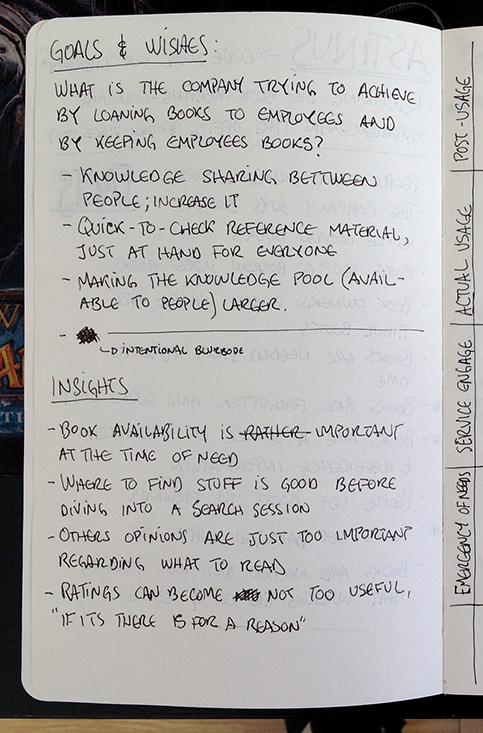 GOALS & WISHES:
WHAT IS THE COMPANY TRYING TO ACHIEVE
BY LOANING BOOKS TO EMPLOYEES AND
BY KEEPING EMPLOYEES BOOKS?
- KNOWLEDGE SHARING BETTWEEN
PEOPLE; INCREASE IT
- QUICK-TO-CHECK REFERENCE MATERIAL,
JUST AT HAND FOR EVERYONE
- MAKING THE KNOWLEDGE POOL (AVAIL-
ABLE TO PEOPLE) LARGER.
-
INTENTIONAL
INSIGHTS
- BOOK AVAILABILITY IS RATHER IMPORTANT
AT THE TIME OF NEED
- WHERE TO FIND STUFF IS GOOD BEFORE
DIVING INTO A SEARCH SESSION
- OTHERS OPINIONS ARE JUST TOO IMPORTANT
REGARDING WHAT TO READ
- RATINGS CAN BECOME NOT TOO USEFUL,
"IF ITS THERE IS FOR A REASON"
POST-USAGE
ACTUAL USAGE
SERVICE ENGAGE
EMERGENCY OF NEEDS